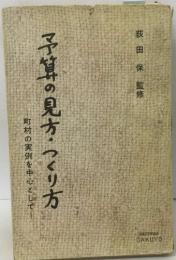 荻田 保 監修
予算の見方・つくり方
町村の実例を中心として
GAKUYO